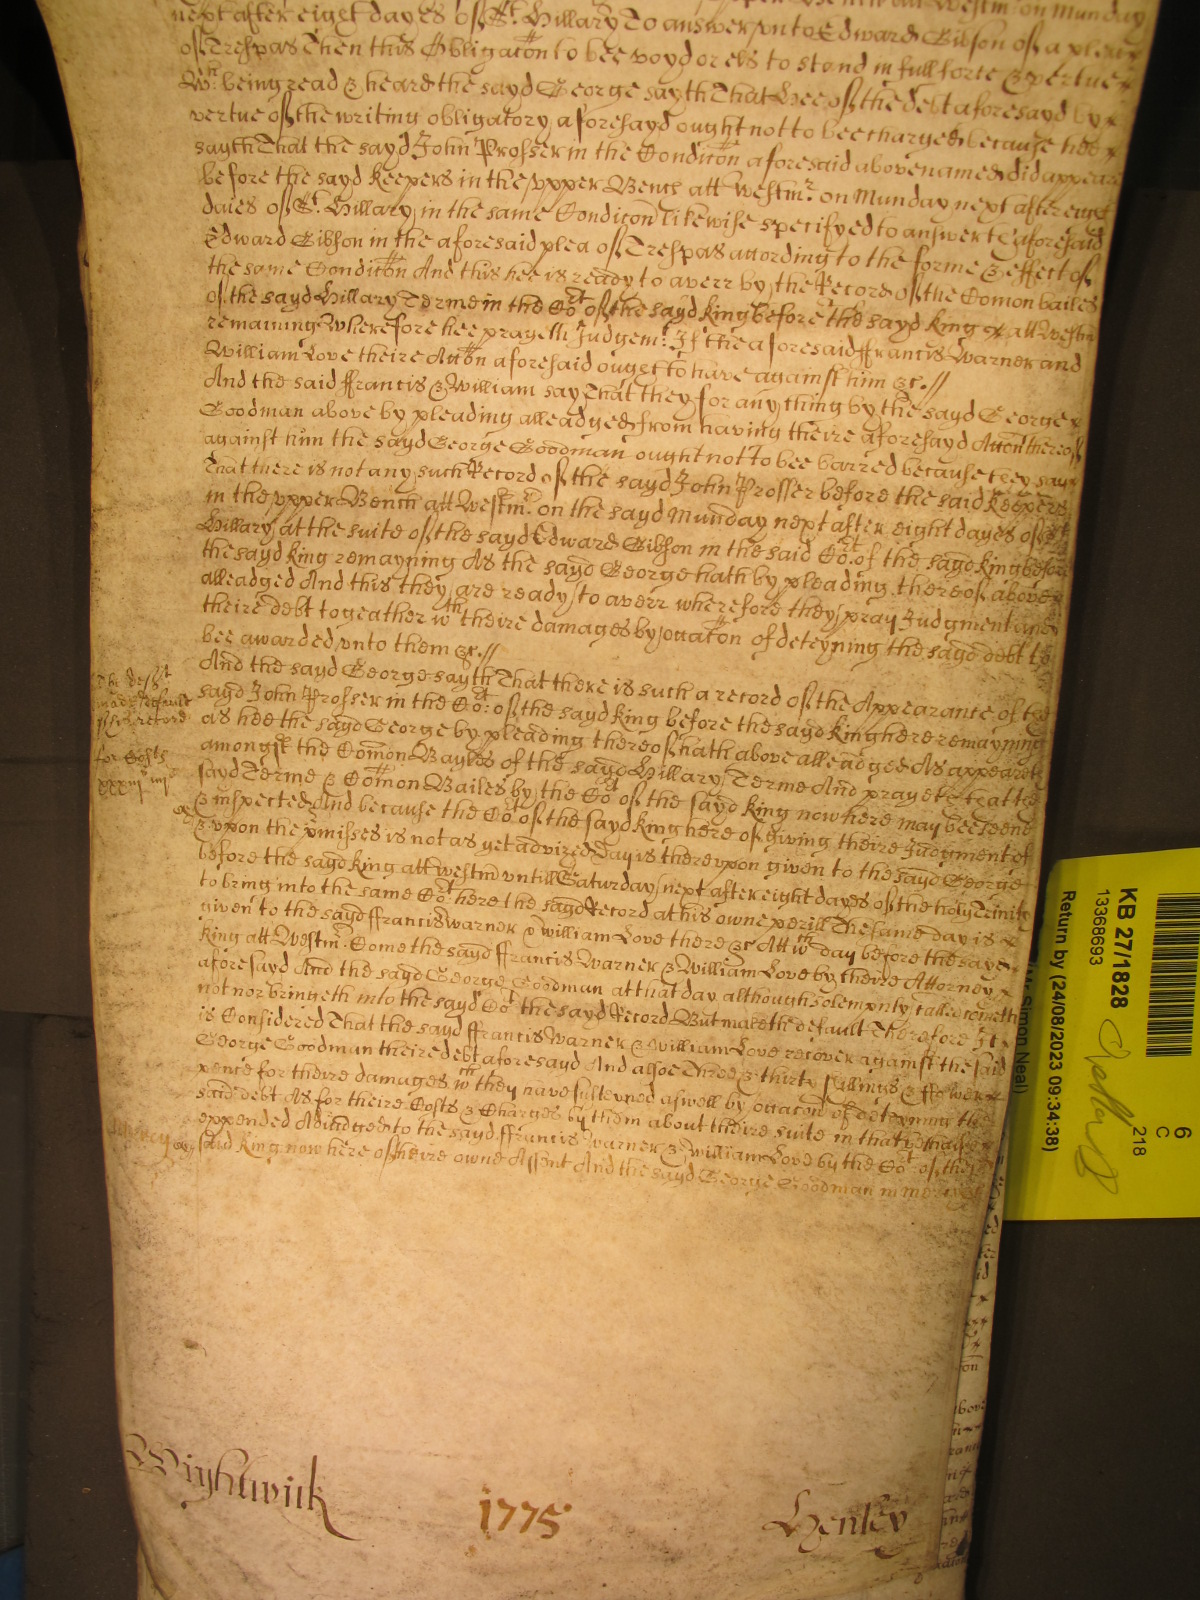 next after eiget dayes of St. Hillary To answer unto Edward Gibson of a plea
of Trespas Then this Obligacon to bee voyd or els to stand in full force & vertue
Wch. being read & heard the sayd George sayth That hee of the debt aforesayd by
vertue of the writing obligatory aforesayd ought not to bee charged because hee
sayth That the sayd John Prosser in the Condicon aforesaid above named did appeare
before the sayd Keepers in the upper Bench att Westmr. on Munday next after eiget
daies of St. Hillary in the same Condicon likewise specifyed to answer the aforesaid
Edward Gibson in the aforesaid plea of Trespas according to the forme & effect of
the same Condicon And this hee is ready to averr by the Record of the Comon bailes
of the sayd Hillary Terme in the Cort of the sayd king before the sayd king att Westm
remaining Wherefore hee prayeth Judgemt: If the aforesaid ffrancis Warner and
William Love theire Accon aforesaid ought to have against him &c. //
And the said ffrancis & William say That they for any thing by the sayd George
Goodman above by pleading alleadged from having theire aforesayd Accon thereof
against him the sayd George Goodman ought not to bee barred because they say
That there is not any such Record of the sayd John Prosser before the said Keepers
in the upper Bench att Westmr. on the sayd Munday next after eight dayes of St
Hillary at the suite of the sayd Edward Gibson in the said Cort. of the sayd king before
the sayd king remayning As the sayd George hath by pleading thereof above
alleadged And this they are ready to averr wherefore they pray Judgment and
theire debt togeather wth theire damages by occacon of deteyning the sayd debt to
bee awarded unto them &c. //
And the sayd George sayth That there is such a record of the Appearance of the
sayd John Prosser in the Cort: of the sayd king before the sayd king here remayning
as hee the sayd George by pleading thereof hath above alleadged As appeareth
amongst the Comon Bayles of the sayd Hillary Terme And prayeth that the
sayd Terme & Comon Bailes by the Cort of the sayd king now here may bee seene
& inspected And because the Cort of the sayd king here of giving theire Judgment of
& upon the pmisses is not as yet advized Day is thereupon given to the sayd George
before the sayd king att Westm untill Saturday next after eight dayes of the holy Trinity
to bring into the same Cort here the sayd Record at his owne perill The same day is
given to the sayd ffrancis Warner & William Love there &c Att wch day before the sayd
king att Westmr. Come the sayd ffrancis Warner & William Love by theire Attorney
aforesayd And the sayd George Goodman at that day although solempnly called cometh
not nor bringeth into the sayd Cort the sayd Record But maketh default Therefore It
is Considered That the sayd ffrancis Warner & William Love recover against the said
George Goodman theire debt aforesayd And alsoe Three & thirty shillings & ffower
pence for theire damages wch they have susteyned aswell by occacon of deteyning the
said debt As for theire Costs & Charges by them about theire suite in that behalfe
expended Adiudged to the sayd ffrancis Warner & William Love by the Cort of the
said king now here of theire owne Assent And the sayd George Goodman in mercy
&c
The Deft
made default
of the record
for Costs
xxxiijs iiijd
Mercy
Wightwick
1775
Henley
KB 27/1828
13368693
Return by (24/08/2023 09:34:38)
Simon Neal)
218
C
6